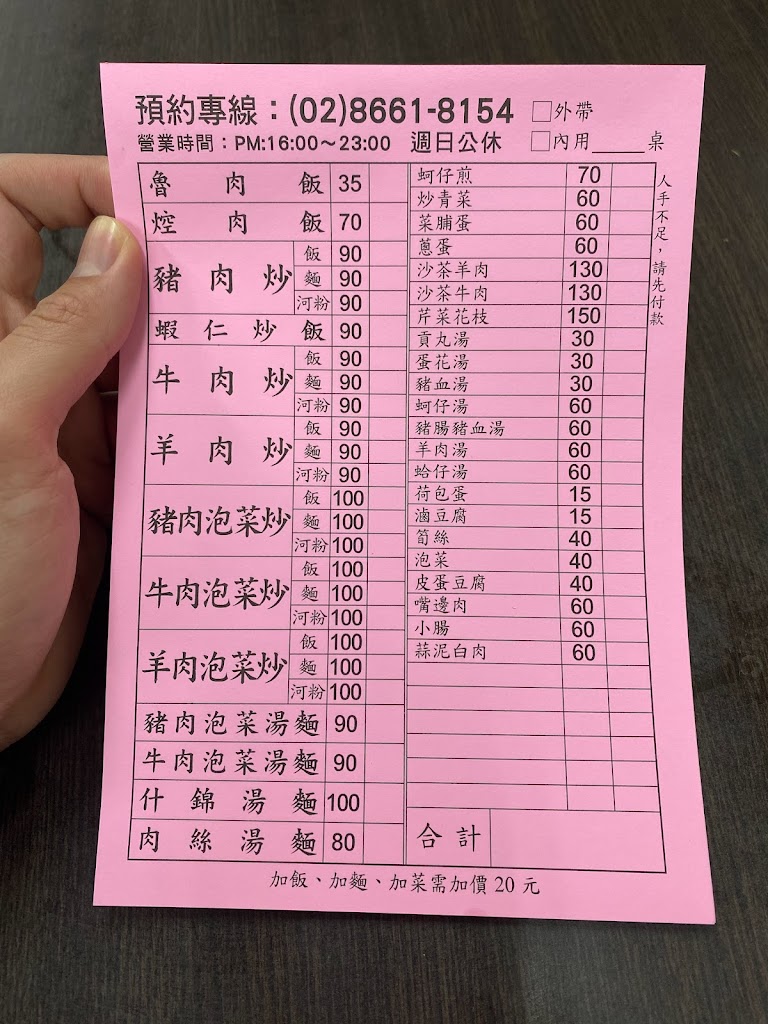 預約專線：(02)8661-8154 □外帶
營業時間：PM:16:00～23:00 週日公休 □內用____桌
魯肉飯 35
焢肉飯 70
豬肉炒 飯 90
麵 90
河粉 90
蝦仁炒飯 90
牛肉炒 飯 90
麵 90
河粉 90
羊肉炒 飯 90
麵 90
河粉 90
豬肉泡菜炒 飯 100
麵 100
河粉 100
牛肉泡菜炒 飯 100
麵 100
河粉 100
羊肉泡菜炒 飯 100
麵 100
河粉 100
豬肉泡菜湯麵 90
牛肉泡菜湯麵 90
什錦湯麵 100
肉絲湯麵 80
蚵仔煎 70
炒青菜 60
菜脯蛋 60
蔥蛋 60
沙茶羊肉 130
沙茶牛肉 130
芹菜花枝 150
貢丸湯 30
蛋花湯 30
豬血湯 30
蚵仔湯 60
豬腸豬血湯 60
羊肉湯 60
蛤仔湯 60
荷包蛋 15
滷豆腐 15
筍絲 40
泡菜 40
皮蛋豆腐 40
嘴邊肉 60
小腸 60
蒜泥白肉 60
合計
人手不足，請先付款
加飯、加麵、加菜需加價 20 元